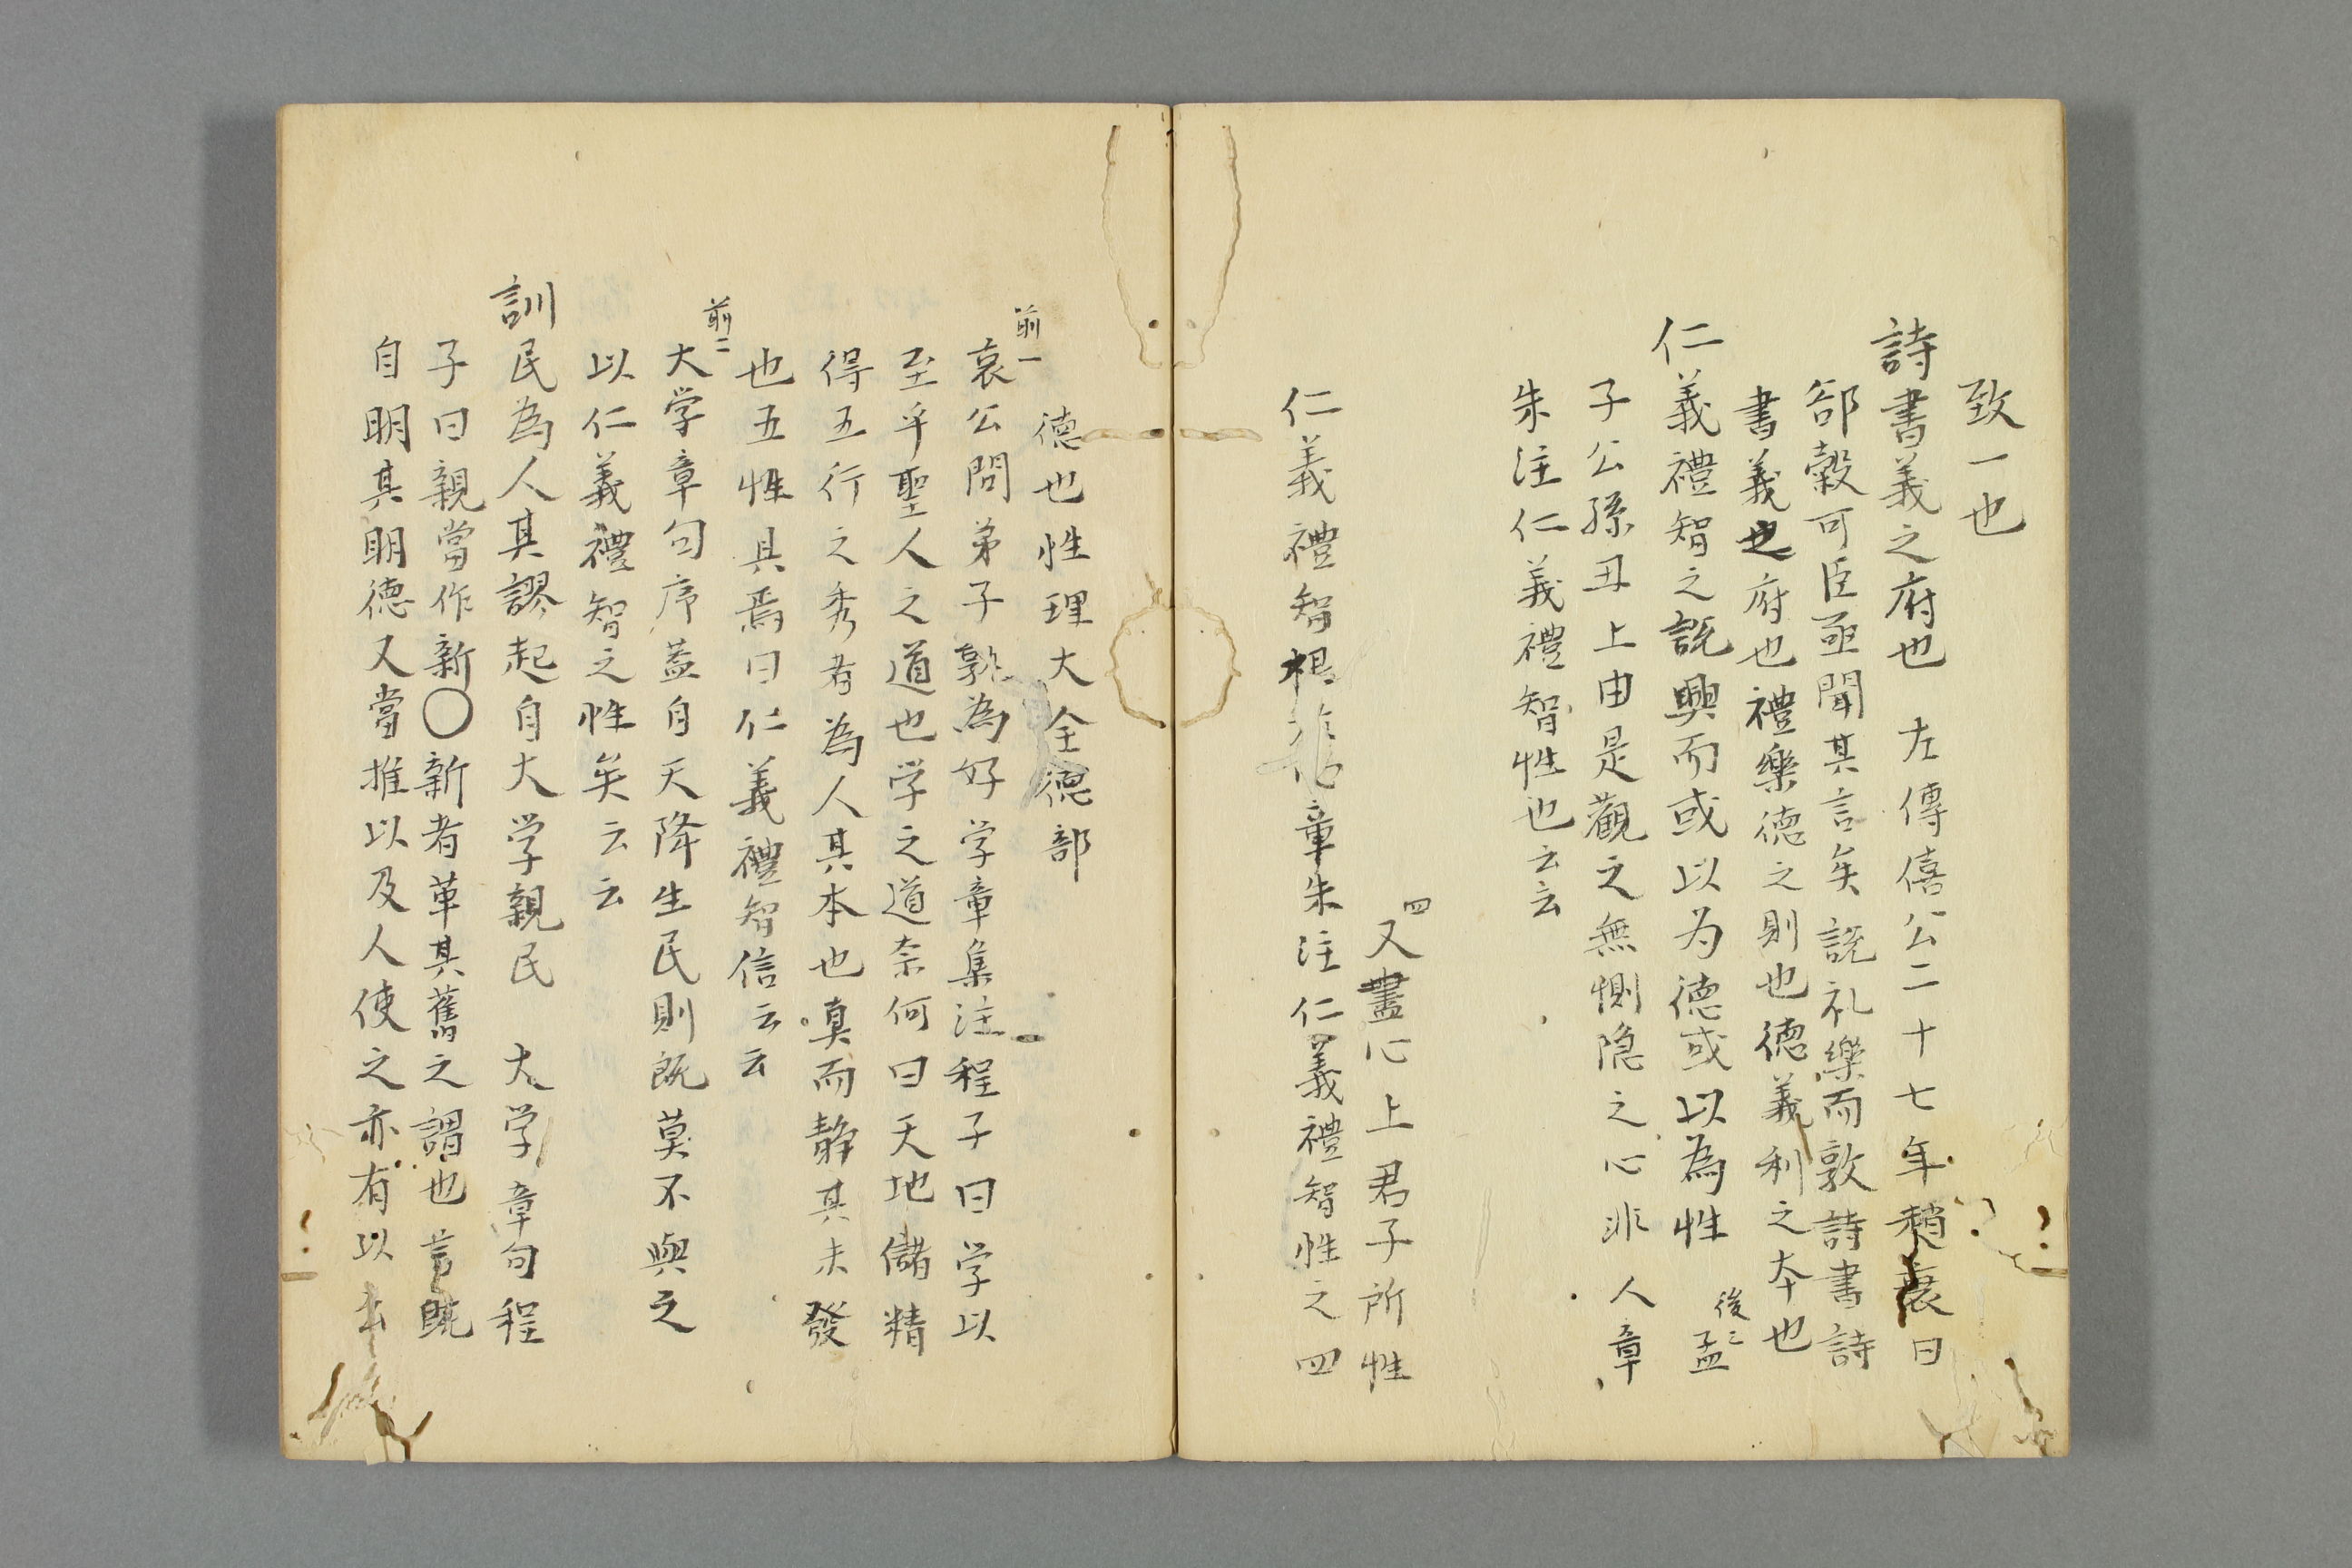 致一也
詩書義之府也 左傳僖公二十七年趙衰曰
郤縠可臣亟聞其言矣説礼樂而敦詩書詩
書義之府也禮樂徳之則也徳義利之本也
仁義禮智之説興而或以为徳或以為性 後三 孟
子公孫丑上由是觀之無惻隠之心非人章
朱注仁義禮智性也云云
四 又盡心上君子所性
仁義禮智根 章朱注仁義禮智性之四
徳也性理大全徳部
前一 哀公問弟子孰為好学章集注程子曰学以
至乎聖人之道也学之道奈何曰天地儲精
得五行之秀者為人其本也真而靜其未發
也五性具焉曰仁義禮智信云云
前二 大学章句序蓋自天降生民則既莫不與之
以仁義禮智之性矣云云
訓民為人其謬起自大学親民 大学章句程
子曰親當作新〇新者革其舊之謂也言既
自明其明徳又當推以及人使之亦有以去